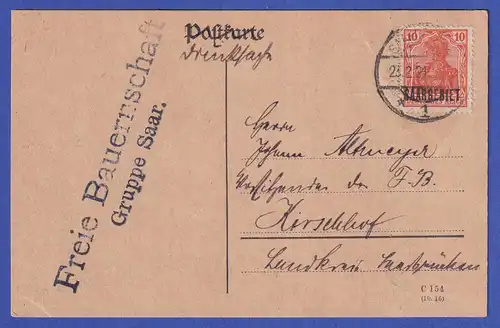 Postkarte
Drucksache
Freie Bauernschaft
Gruppe Saar.
10 10
SAARGEBIET
23.2.21
1
Herrn
Johann Altmeyer
Vorsitzender der F.B.
Kirschhof
Landkreis Saarbrücken
C 154